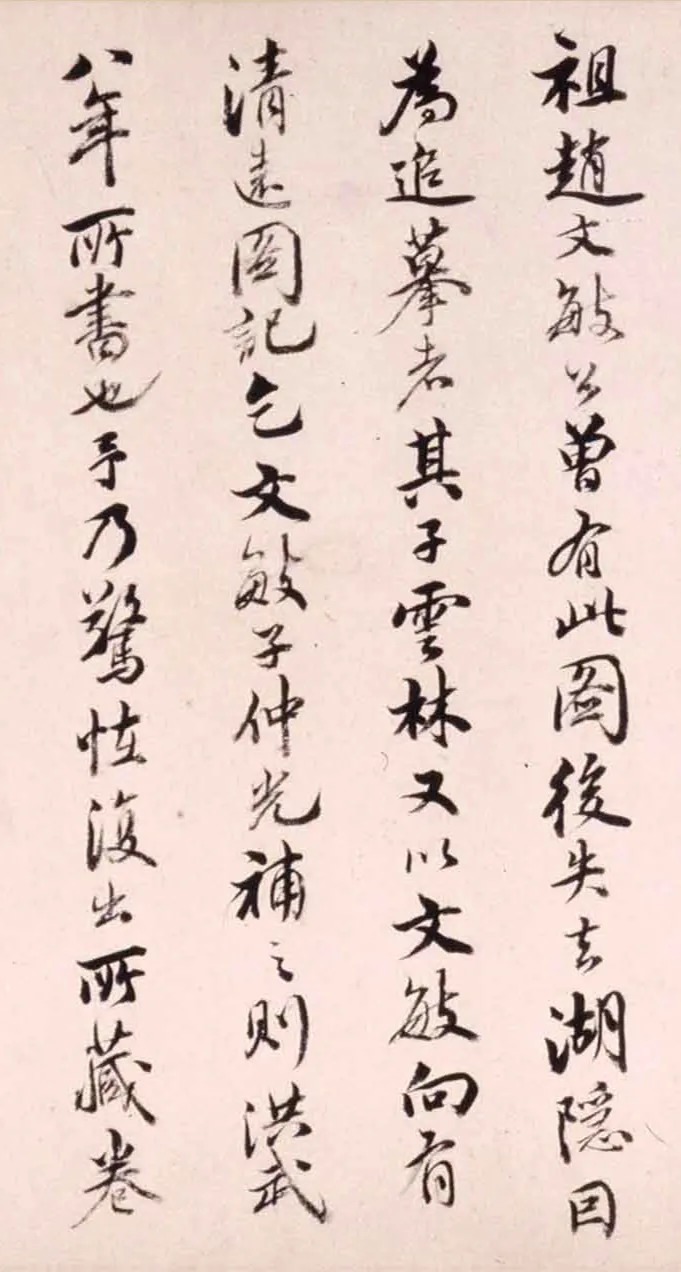 祖趙文敏公曾有此圖後失去湖隱因
為追摹者其子雲林又以文敏向有
清遠圖記乞文敏子仲光補之則洪武
八年所書也予乃驚怪復出所藏卷